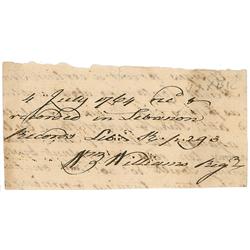 4 July 1764 recd &
recorded in Lebanon
Records Lib. p. 293
Wm Williams Regr